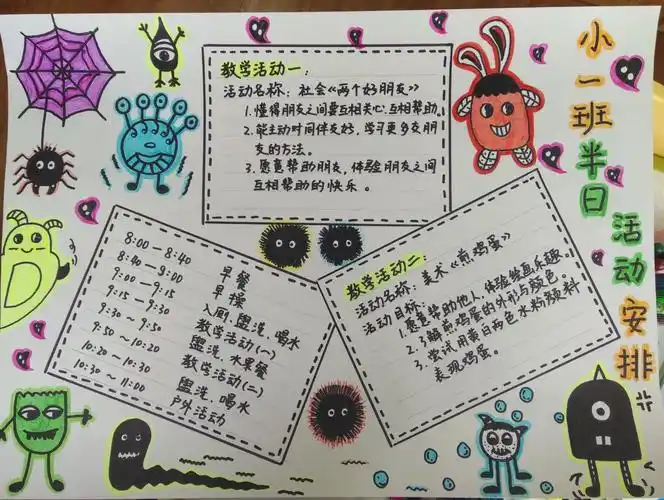 小一班半日活动安排
教学活动一：
活动名称：社会《两个好朋友》
1.懂得朋友之间要互相关心.互相帮助.
2.能主动时间伴友好，学习更多交朋
友的方法。
3.愿意帮助朋友，体验朋友之间
互相帮助的快乐。
8:00-8:40 早餐
8:40-9:00 早操
9:00-9:15 入厕.盥洗.喝水
9:15-9:30 教学活动(一)
9:30-9:50 盥洗.水果餐
9:50-10:20 教学活动(二)
10:20-10:30 盥洗、喝水
10:30-11:00 户外活动
教学活动二：
活动名称：美术《煎鸡蛋》
活动目标：
1.愿意帮助他人，体验绘画乐趣。
2.了解煎鸡蛋的外形与颜色。
3.尝试用黄白两色水粉颜料
表现鸡蛋。